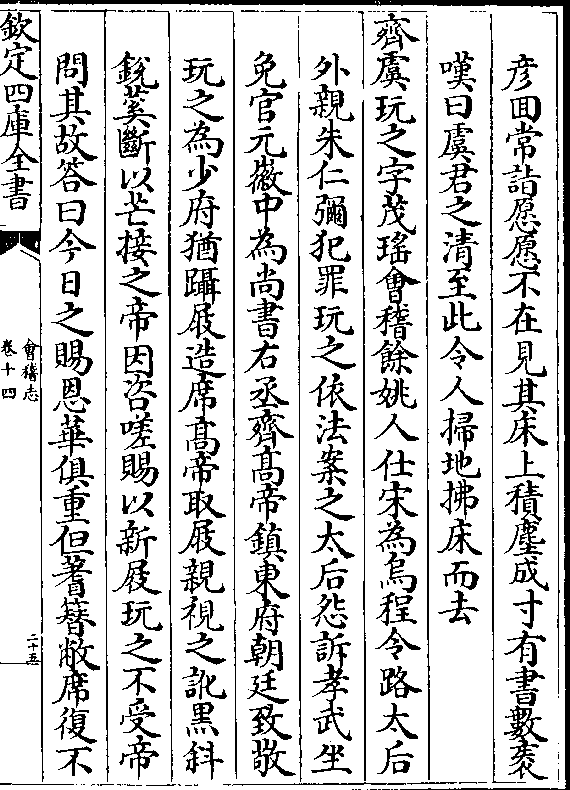 彦回常詣愿愿不在見其床上積塵成寸有書數袠
嘆曰虞君之清至此令人掃地拂床而去
齊虞玩之字茂瑤會稽餘姚人仕宋為烏程令路太后
外親朱仁彌犯罪玩之依法案之太后怨訴孝武坐
免官元徽中為尚書右丞齊髙帝鎮東府朝廷致敬
玩之為少府猶躡屐造席髙帝取屐親視之訛黒斜
鋭蒵斷以芒接之帝因咨嗟賜以新屐玩之不受帝
問其故答曰今日之賜恩華俱重但蓍簪敝席復不
欽定四庫全書
會稽志
卷十四
二十五